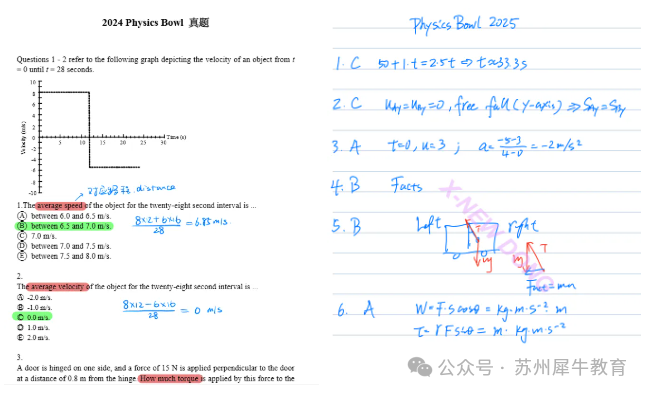 2024 Physics Bowl 真题
Questions 1 - 2 refer to the following graph depicting the velocity of an object from t
= 0 until t = 28 seconds.
10
8
6
4
2
0
-2
-4
-6
-8
-10
5
10
15
20
25
30
Time (s)
Velocity (m/s)
distance
1.The average speed of the object for the twenty-eight second interval is ...
A between 6.0 and 6.5 m/s.
B between 6.5 and 7.0 m/s.
C 7.0 m/s.
D between 7.0 and 7.5 m/s.
E between 7.5 and 8.0 m/s.
8×12+6×16
28
= 6.85 m/s
2.
The average velocity of the object for the twenty-eight second interval is ...
A -2.0 m/s.
B -1.0 m/s.
C 0.0 m/s.
D 1.0 m/s.
E 2.0 m/s.
8×12-6×16
28
= 0 m/s
3.
A door is hinged on one side, and a force of 15 N is applied perpendicular to the door
at a distance of 0.8 m from the hinge. How much torque is applied by this force to the
Physics Bowl 2025
1. C 50+1·t=2.5t ⇒ t≈33.3s
2. C UAy=UBy=0, free fall (y-axis) ⇒ SAy=SBy
3. A t=0, u=3 ; a= -5-3 / 4-0 = -2m/s²
4. B Facts
5. B Left right
T
mg
T
m
6. A W=F·s cosθ = kg·m·s⁻²·m
τ=rFsinθ = m·kg·m·s⁻²
公众号 · 苏州犀牛教育